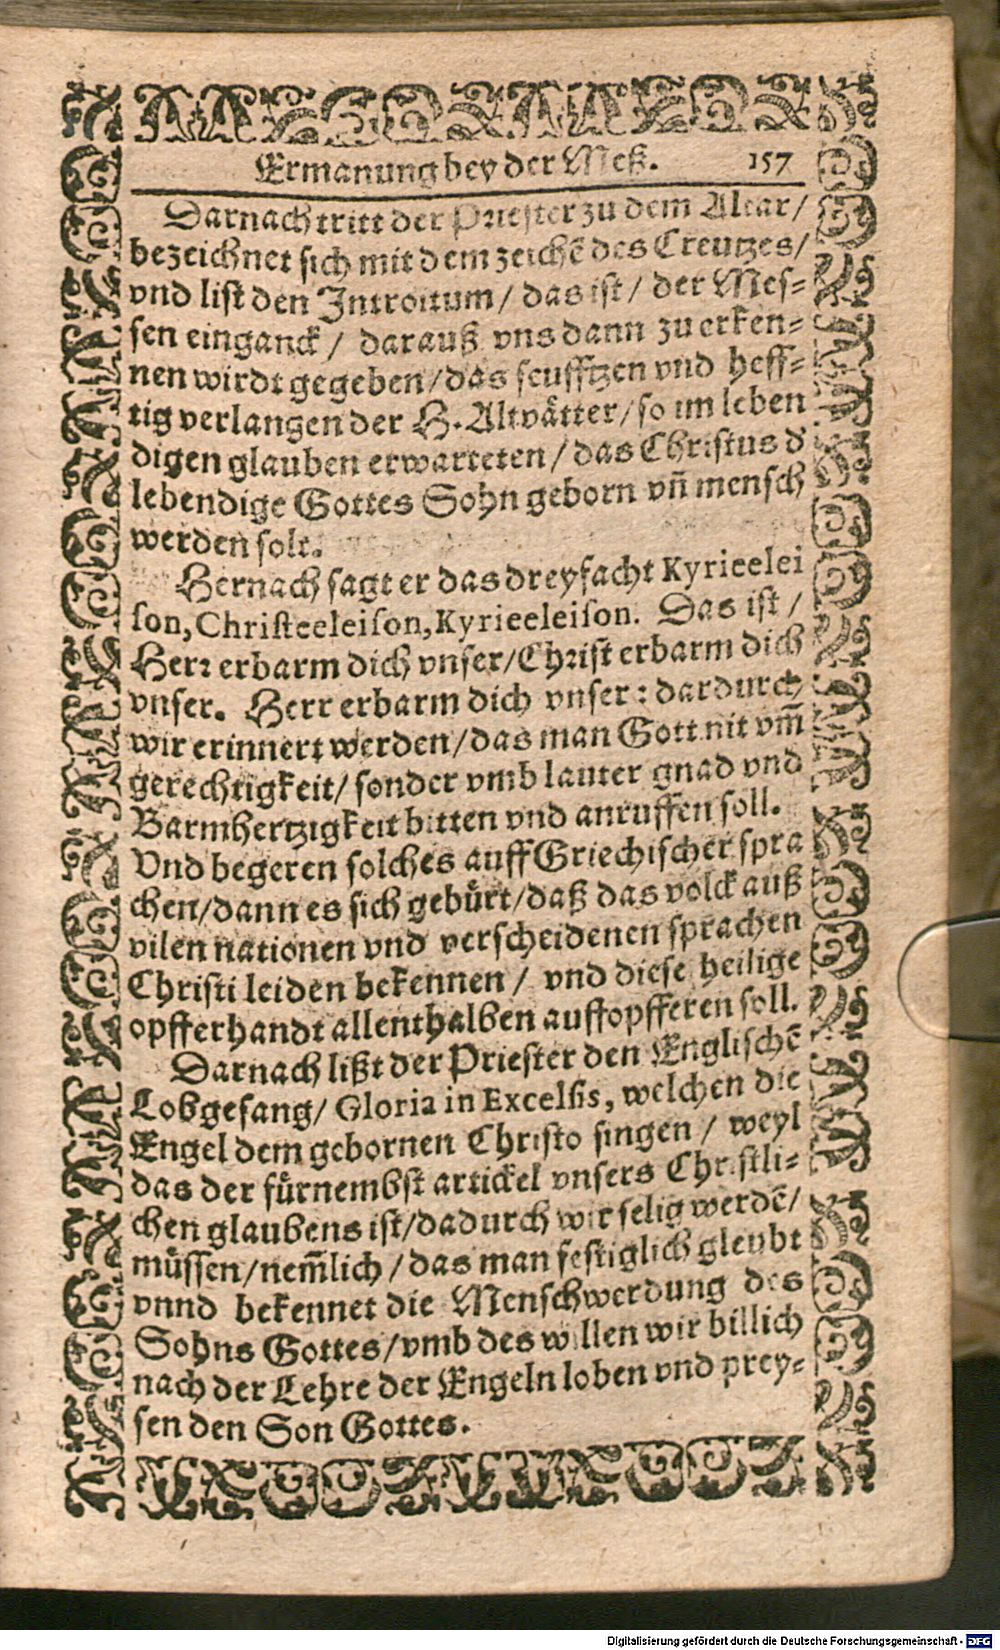 Ermanung bey der Meß. 157
Darnach tritt der Priester zu dem Altar/
bezeichnet sich mit dem zeichē des Creutzes/
vnd list den Introitum / das ist / der Mes-
sen einganck / darauß vns dann zu erken-
nen wirdt gegeben/das seufftzen vnd heff-
tig verlangen der H. Altvätter/so im leben
digen glauben erwarteten/das Christus d'
lebendige Gottes Sohn geborn vn̄ mensch
werden solt.
Hernach sagt er das dreyfacht Kyrieelei
son, Christeeleison, Kyrieeleison. Das ist /
Herr erbarm dich vnser/Christ erbarm dich
vnser. Herr erbarm dich vnser: dardurch
wir erinnert werden/das man Gott nit vm̄
gerechtigkeit/sonder vmb lauter gnad vnd
Barmhertzigkeit bitten vnd anruffen soll.
Vnd begeren solches auff Griechischer spra
chen/dann es sich gebürt/daß das volck auß
vilen nationen vnd verscheidenen sprachen
Christi leiden bekennen / vnd diese heilige
opfferhandt allenthalben auffopfferen soll.
Darnach lißt der Priester den Englischē
Lobgesang/ Gloria in Excelsis, welchen die
Engel dem gebornen Christo singen / weyl
das der fürnembst artickel vnsers Christli-
chen glaubens ist/dadurch wir selig werdē/
müssen/nem̄lich/das man festiglich gleubt
vnnd bekennet die Menschwerdung des
Sohns Gottes/vmb des willen wir billich
nach der Lehre der Engeln loben vnd prey-
sen den Son Gottes.
Digitalisierung gefördert durch die Deutsche Forschungsgemeinschaft - DFG